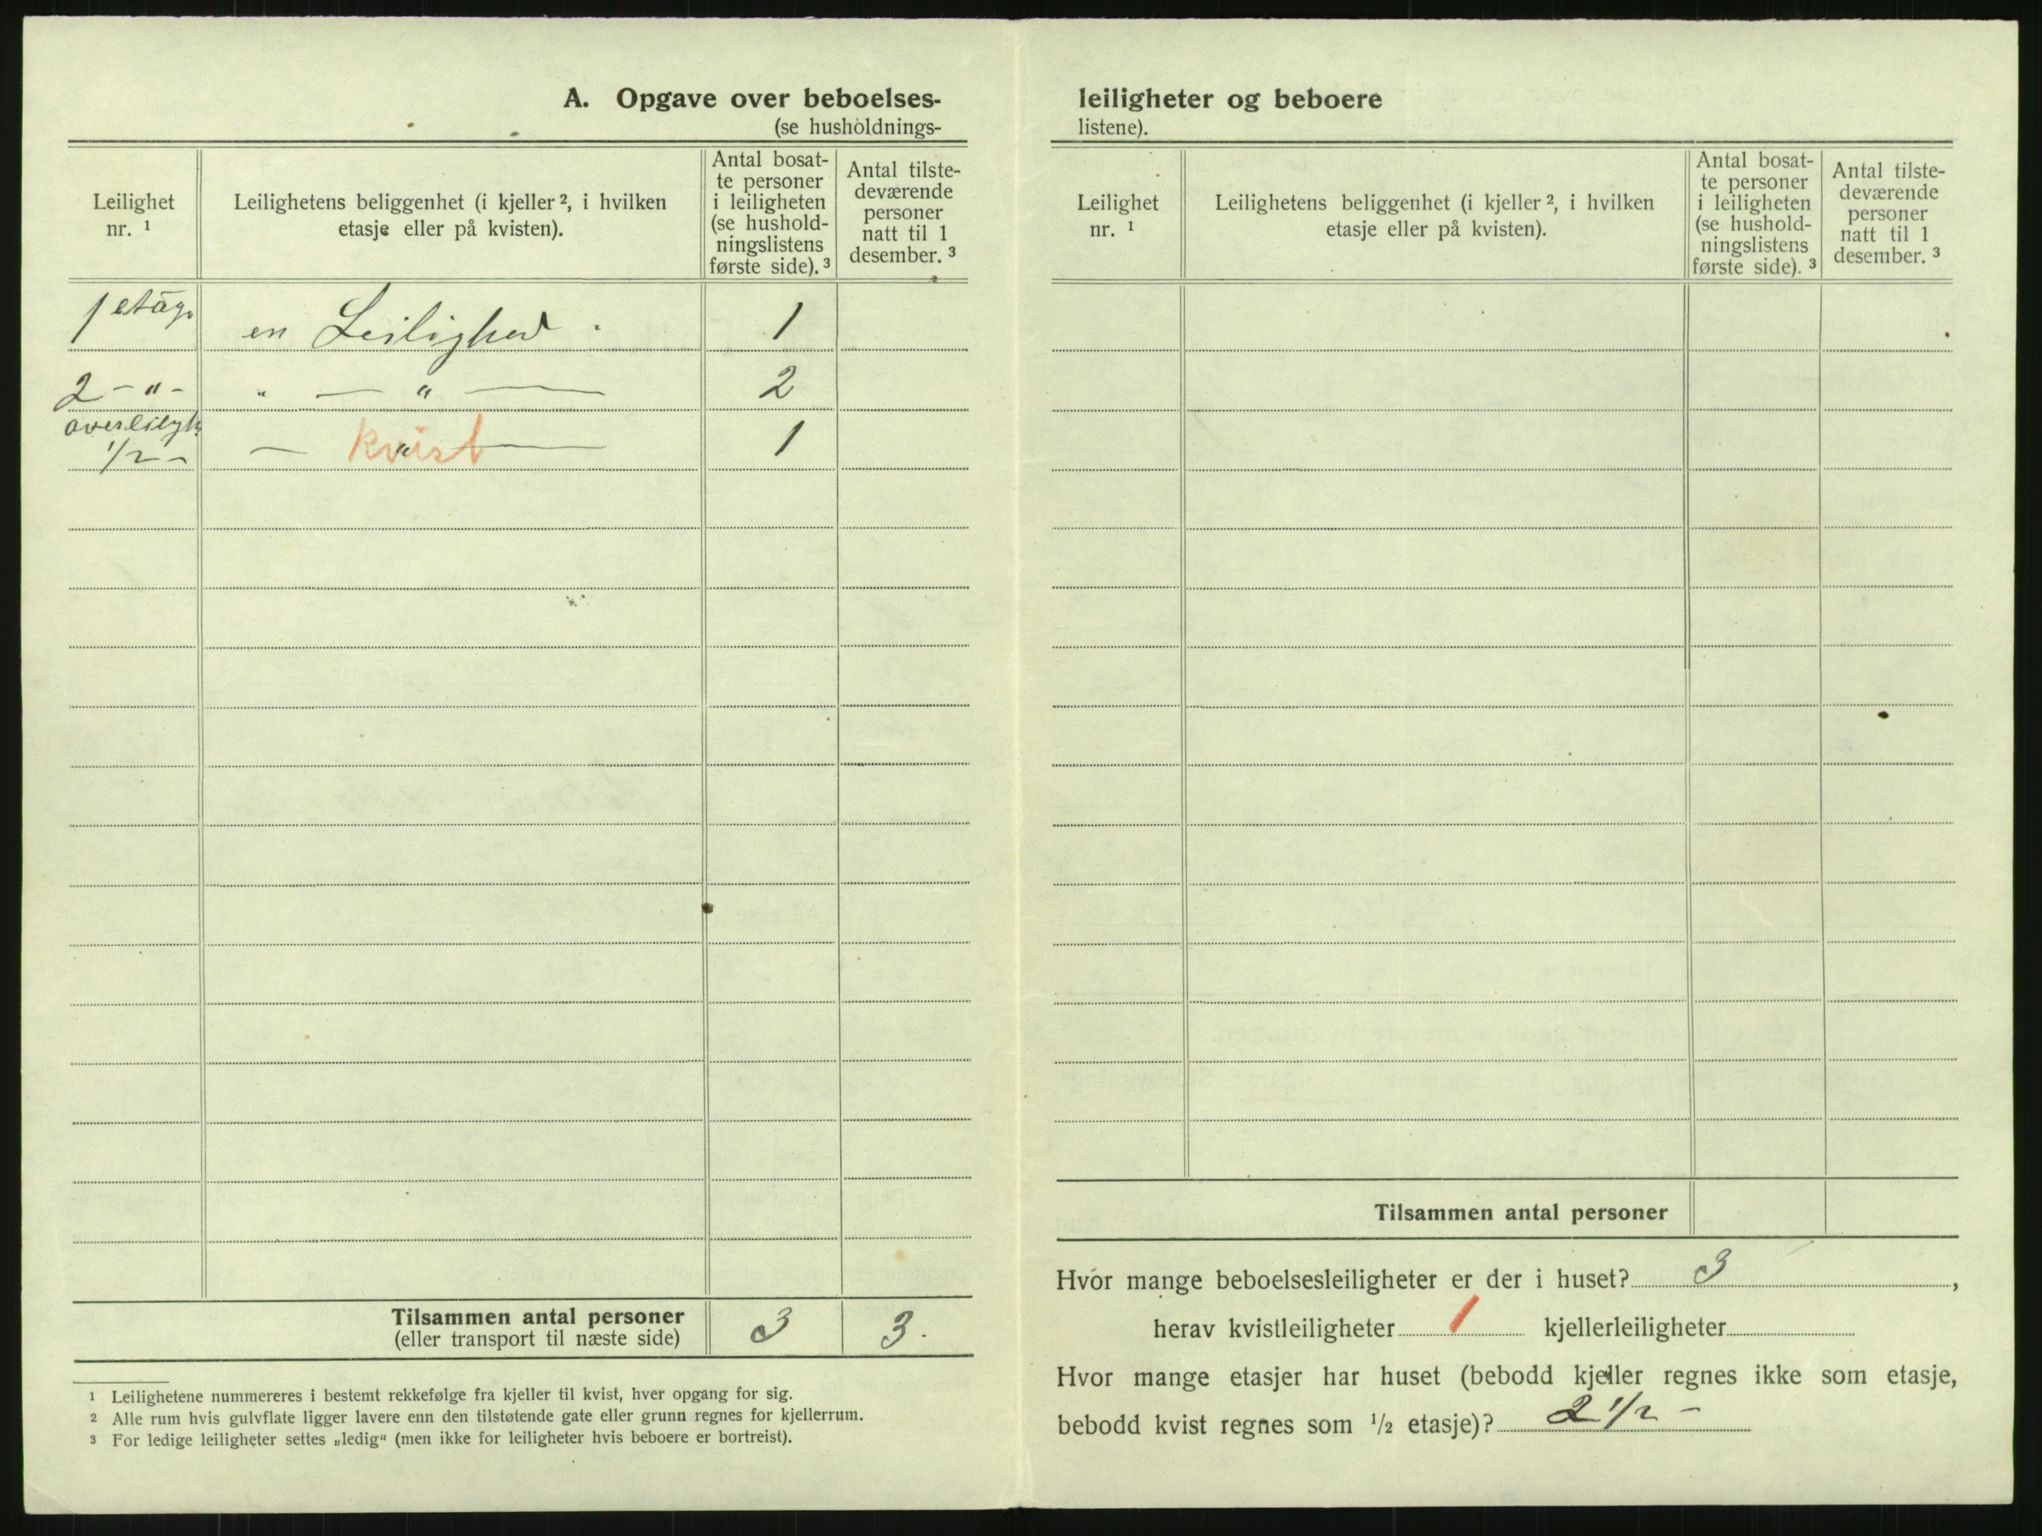 A. Opgave over beboelses-
(se husholdnings-
Leilighet
nr. ¹
Leilighetens beliggenhet (i kjeller ², i hvilken
etasje eller på kvisten).
Antal bosat-
te personer
i leiligheten
(se hushold-
ningslistens
første side). ³
Antal tilste-
deværende
personer
natt til 1
desember. ³
1 etag. en Leilighed . 1
2 - " - " — " — 2
overleiligh
1/2 - — " — kvist 1
Tilsammen antal personer 3 3.
(eller transport til næste side)
¹ Leilighetene nummereres i bestemt rekkefølge fra kjeller til kvist, hver opgang for sig.
² Alle rum hvis gulvflate ligger lavere enn den tilstøtende gate eller grunn regnes for kjellerrum.
³ For ledige leiligheter settes „ledig“ (men ikke for leiligheter hvis beboere er bortreist).
leiligheter og beboere
listene).
Leilighet
nr. ¹
Leilighetens beliggenhet (i kjeller ², i hvilken
etasje eller på kvisten).
Antal bosat-
te personer
i leiligheten
(se hushold-
ningslistens
første side). ³
Antal tilste-
deværende
personer
natt til 1
desember. ³
Tilsammen antal personer
Hvor mange beboelsesleiligheter er der i huset? 3 ,
herav kvistleiligheter 1 kjellerleiligheter
Hvor mange etasjer har huset (bebodd kjeller regnes ikke som etasje,
bebodd kvist regnes som ½ etasje)? 2 1/2 -